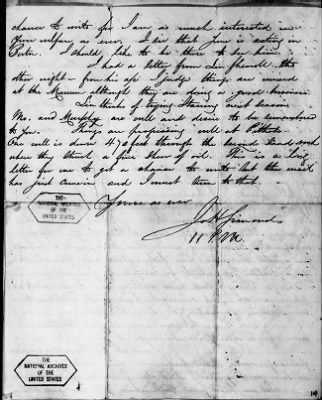 chance to write for I am as much interested in
your welfare as ever. I see that June is acting in
Porter. I should like to be there to see him.
I had a letter from Lin the
other night - from his I judge things are
at the Museum although they are doing a good business
Lin thinks of trying next season
Mc. and Murphy are well and desire to be remembered
to you. Things are progressing well at Pithole
One well is down 470 feet through the second sand rock
where they struck a fine show of oil. This is a long
letter for me to get a chance to write but the mail
has just come in and I must turn to that.
Yours as ever
Jos H Simonds
11 P.M.
THE
NATIONAL ARCHIVES
OF THE
UNITED STATES
THE
NATIONAL ARCHIVES
OF THE
UNITED STATES